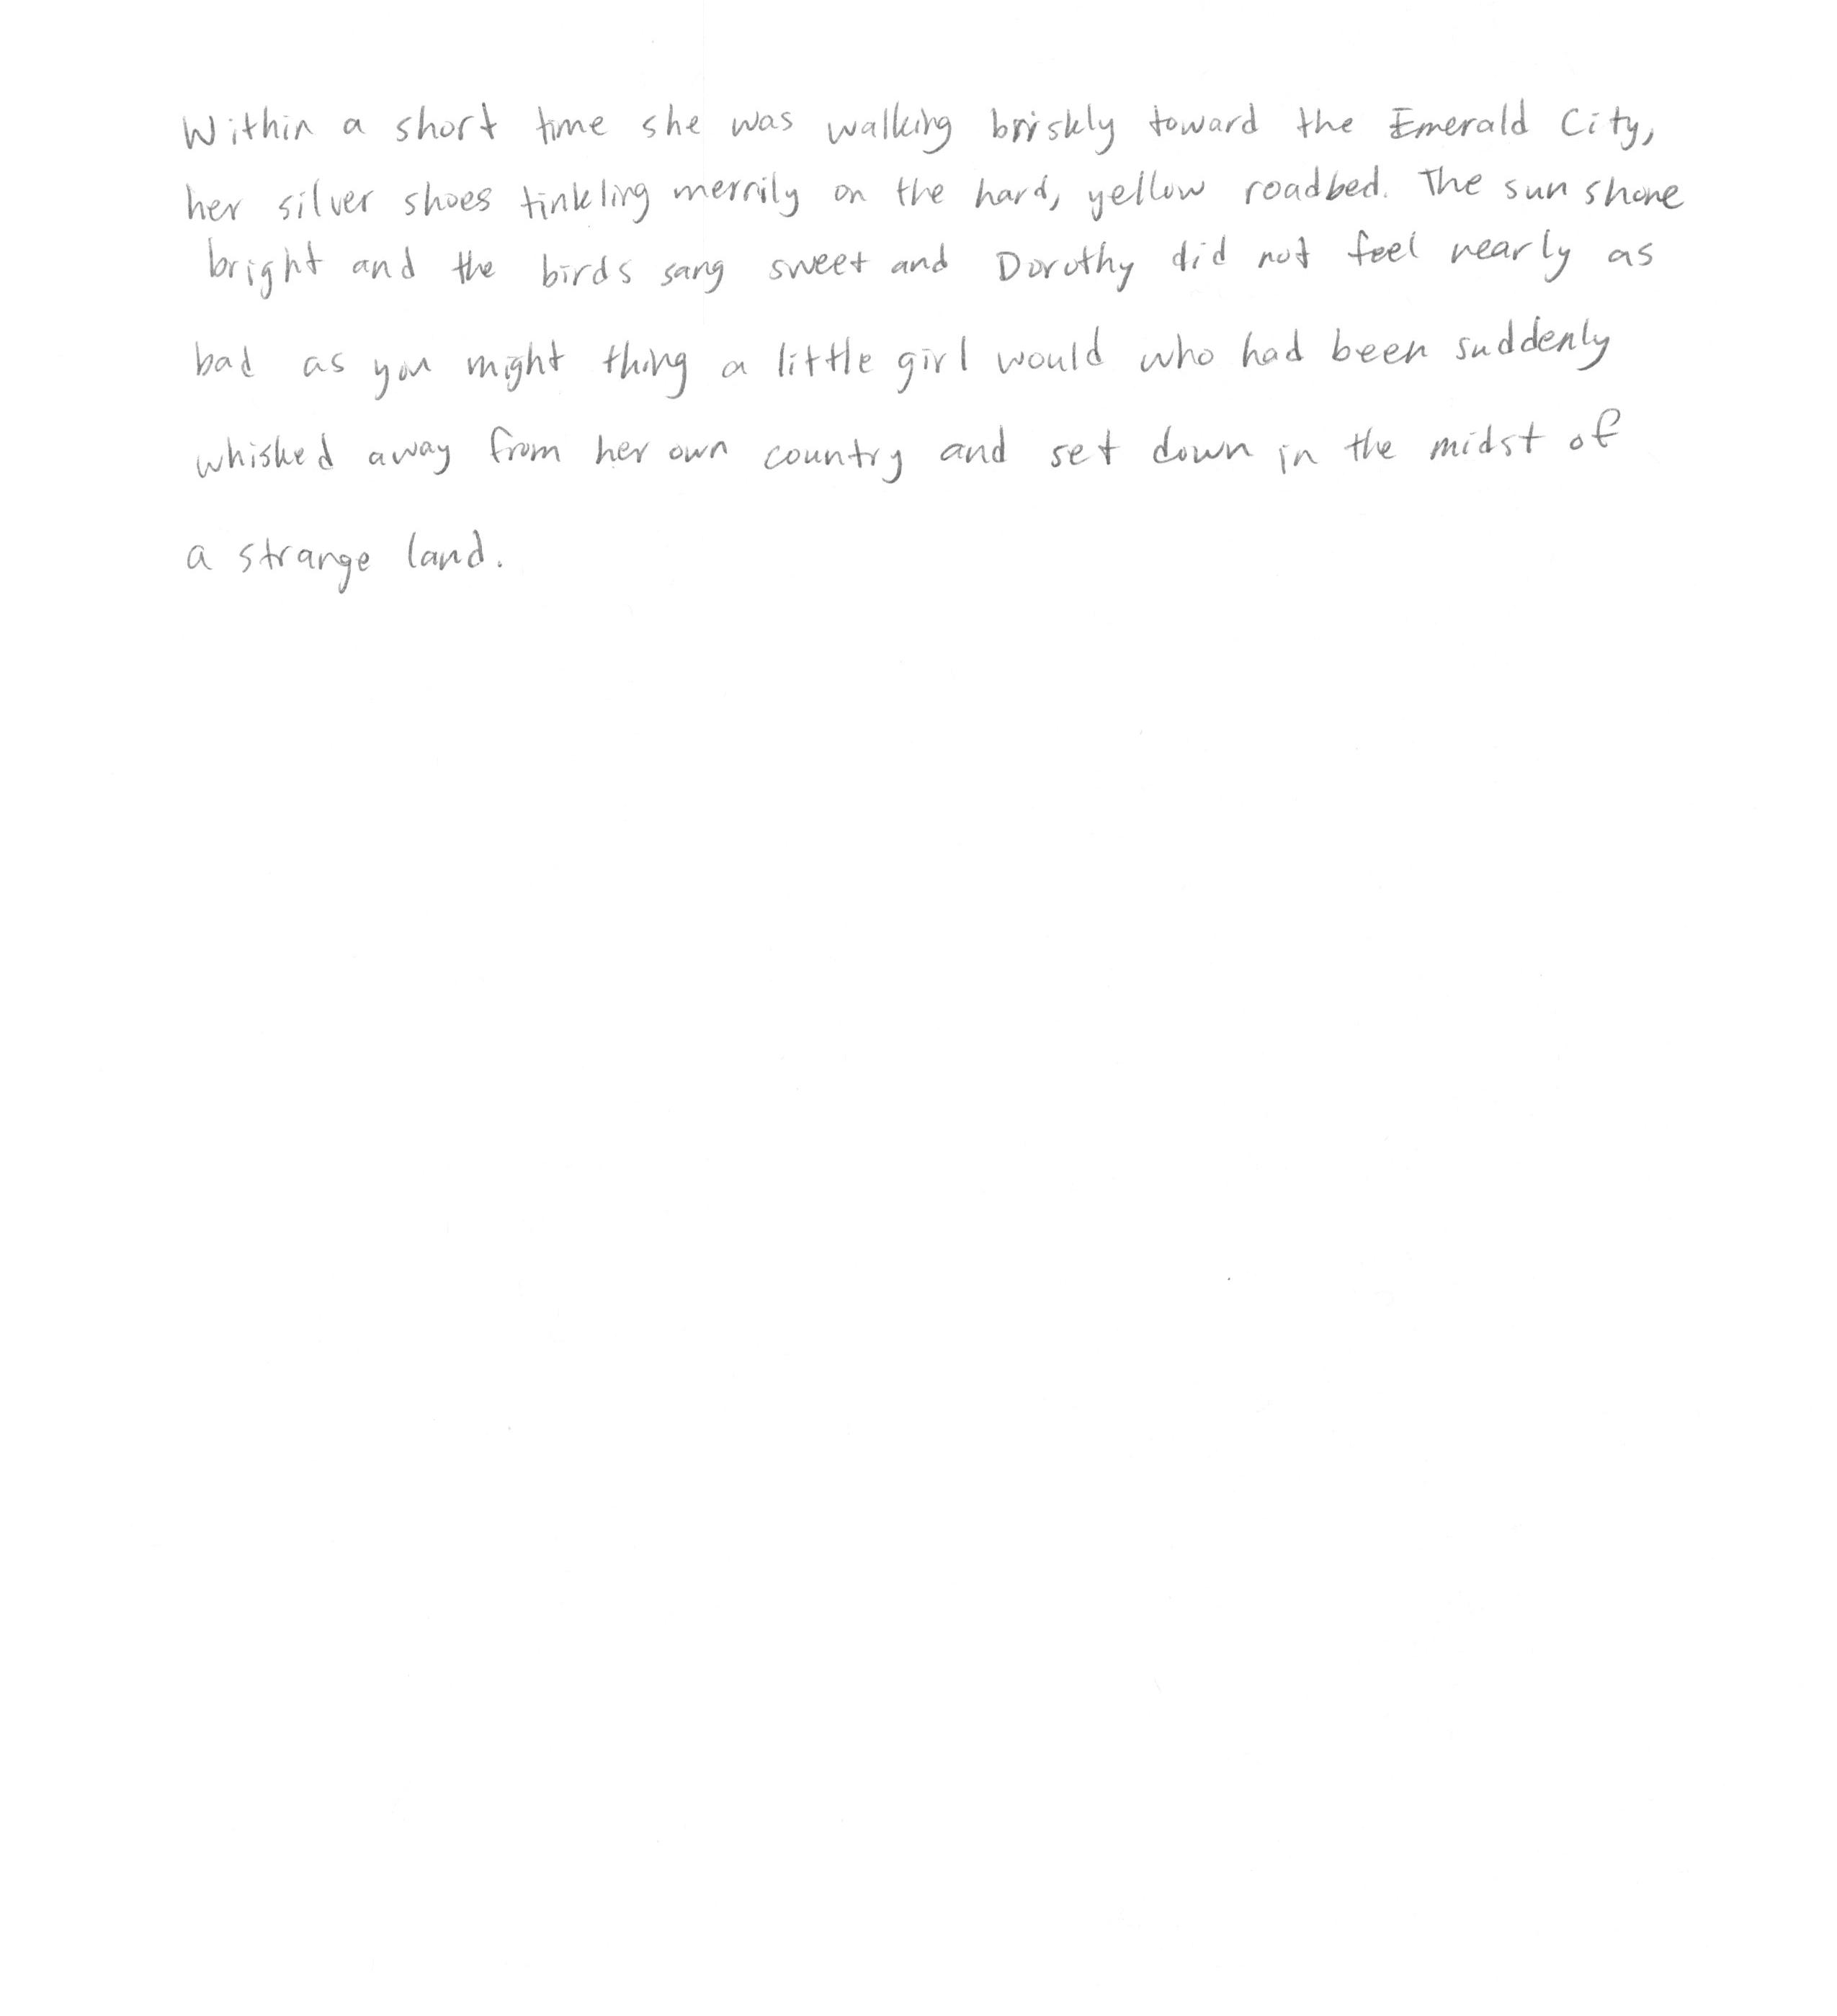 Within a short time she was walking briskly toward the Emerald City,
her silver shoes tinkling merrily on the hard, yellow roadbed. The sun shone
bright and the birds sang sweet and Dorothy did not feel nearly as
bad as you might thing a little girl would who had been suddenly
whisked away from her own country and set down in the midst of
a strange land.